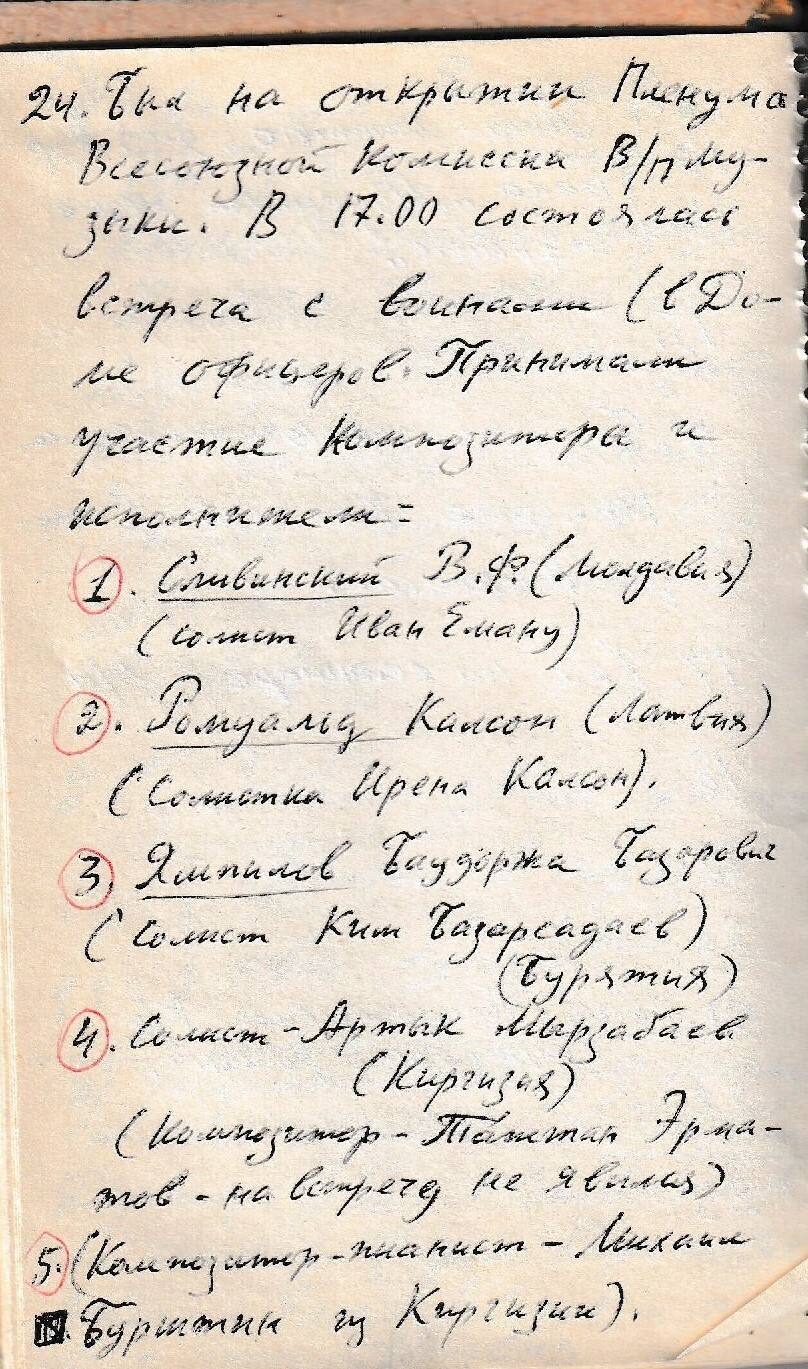 24. Был на открытии Пленума
Всесоюзной Комиссии В/П Му-
зыки. В 17.00 состоялась
встреча с воинами (в До-
ме офицеров. Принимали
участие Композиторы и
исполнители:
1. Сливинский В.Ф. (Молдавия)
(солист Иван Еману)
2. Ромуальд Калсон (Латвия)
(Солистка Ирена Калсон).
3. Ямпилов Баудоржа Базарович
(Солист Ким Базарсадаев)
(Бурятия)
4. Солист - Артык Мырзабаев
(Киргизия)
(Композитор - Таштан Эрма-
тов - на встречу не явился)
5. (Композитор-пианист - Михаил
Бурштин из Киргизии).